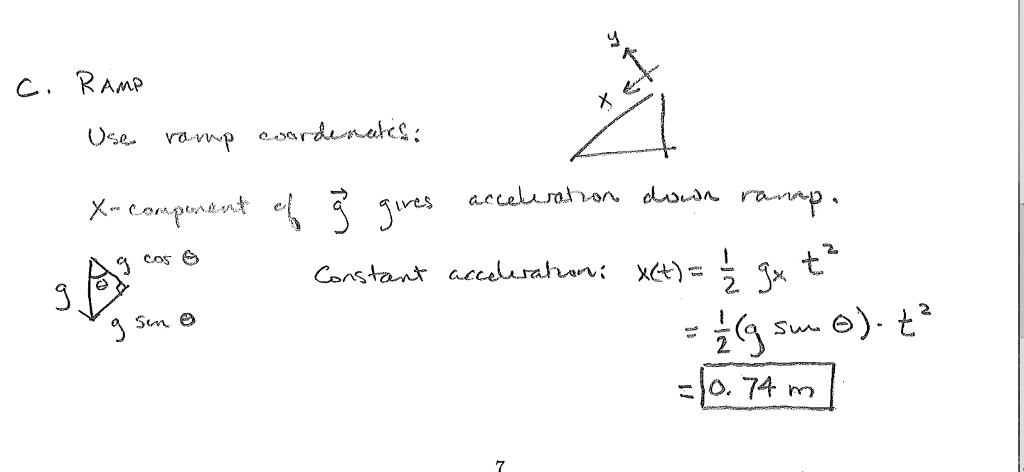 y
x
C. RAMP
Use ramp coordenates:
X-component of g⃗ gives acceleration down ramp.
g cos θ
θ
g
g sin θ
Constant acceleration: x(t) = 1/2 gx t²
= 1/2 (g sin θ) · t²
= 0.74 m
7